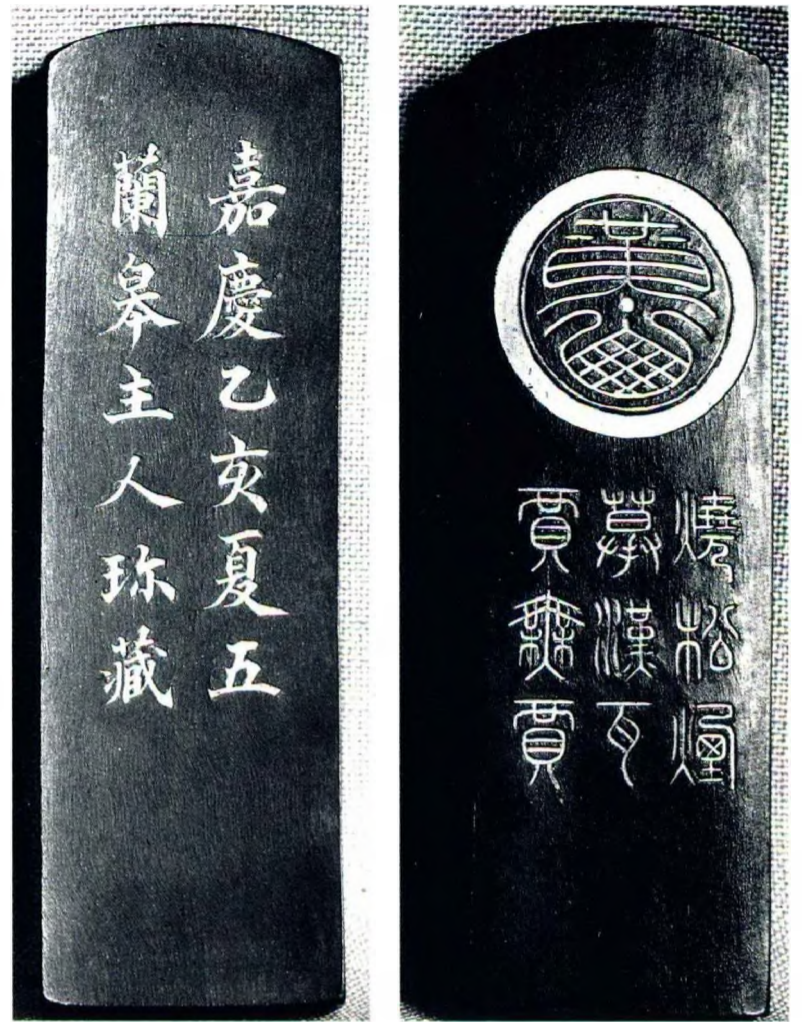 嘉慶乙亥夏五
蘭皋主人珎藏
燒松煙
摹漢瓦
賈無賈